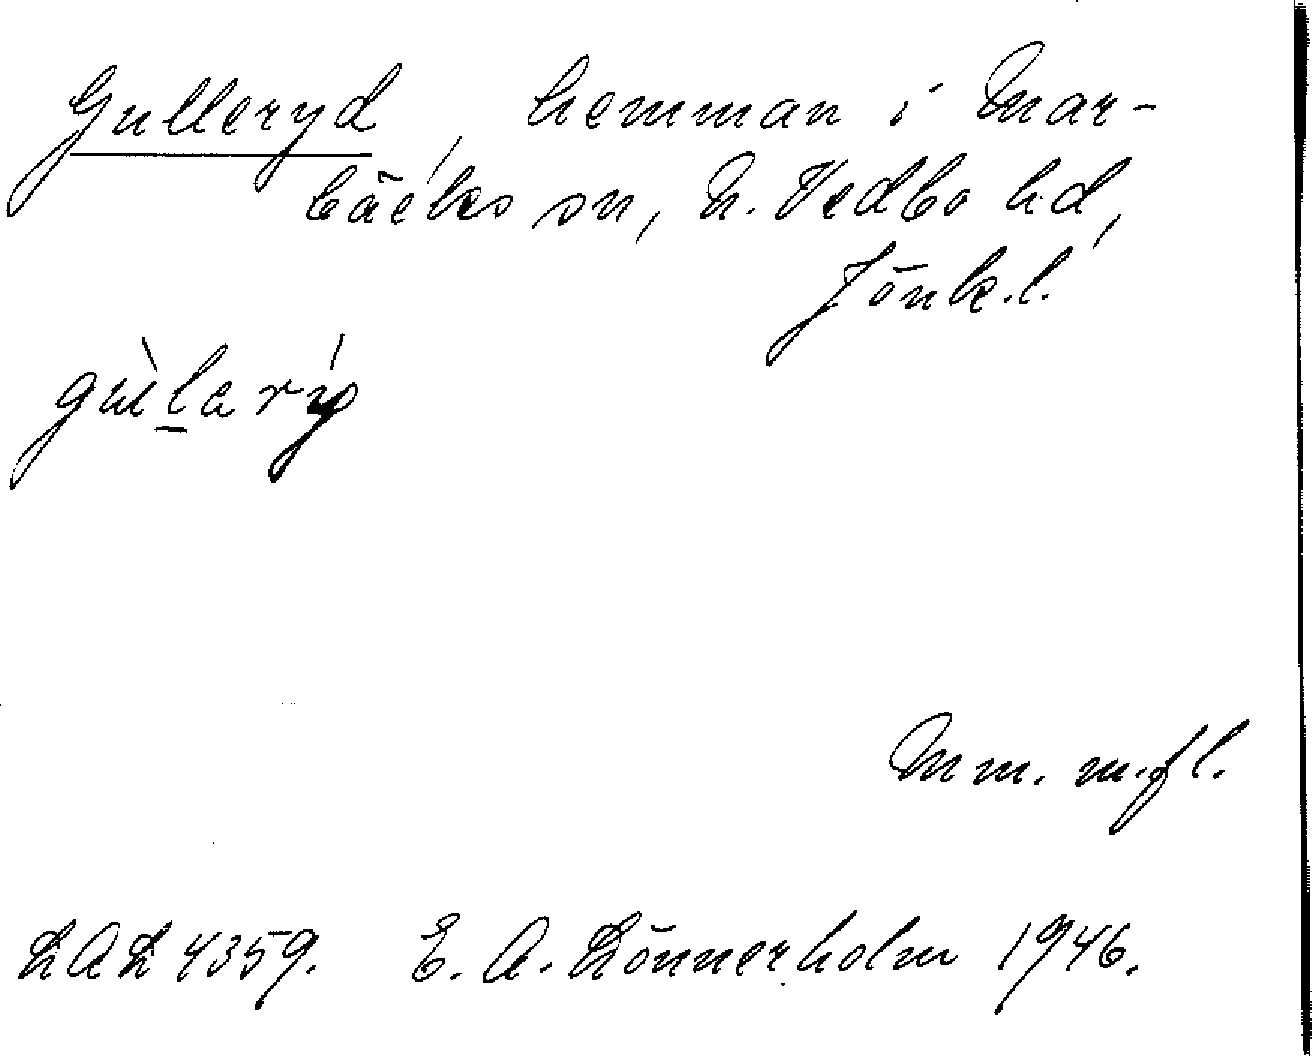 Gulleryd, hemman i Mar-
bäcks sn, N. Vedbo hd,
Jönk.l.
gùl̲arýd
Mm. m.fl.
LAL 4359. E. A. Lönnerholm 1946.